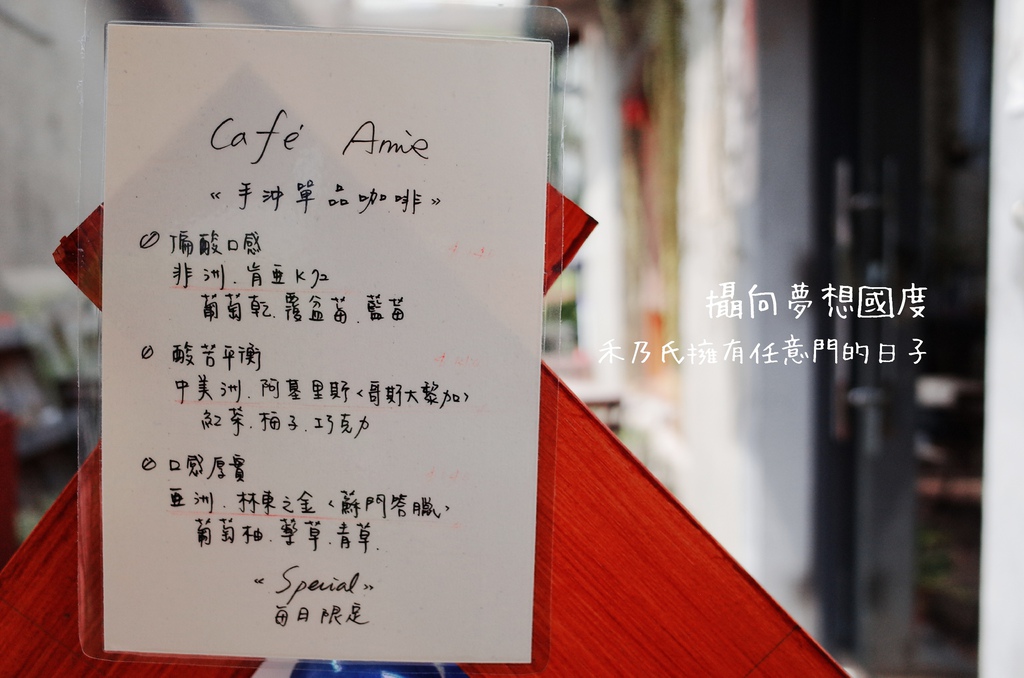 Café Amie
«手沖單品咖啡»
偏酸口感
非洲.肯亞K72
葡萄乾.覆盆莓.藍莓
酸苦平衡
中美洲.阿墓里斯<哥斯大黎加>
紅茶.柚子.巧克力
口感厚實
亞洲.林東之金<蘇門答臘>
葡萄柚.藥草.青草.
«Special»
每日限定
攝向夢想國度
禾乃氏擁有任意門的日子